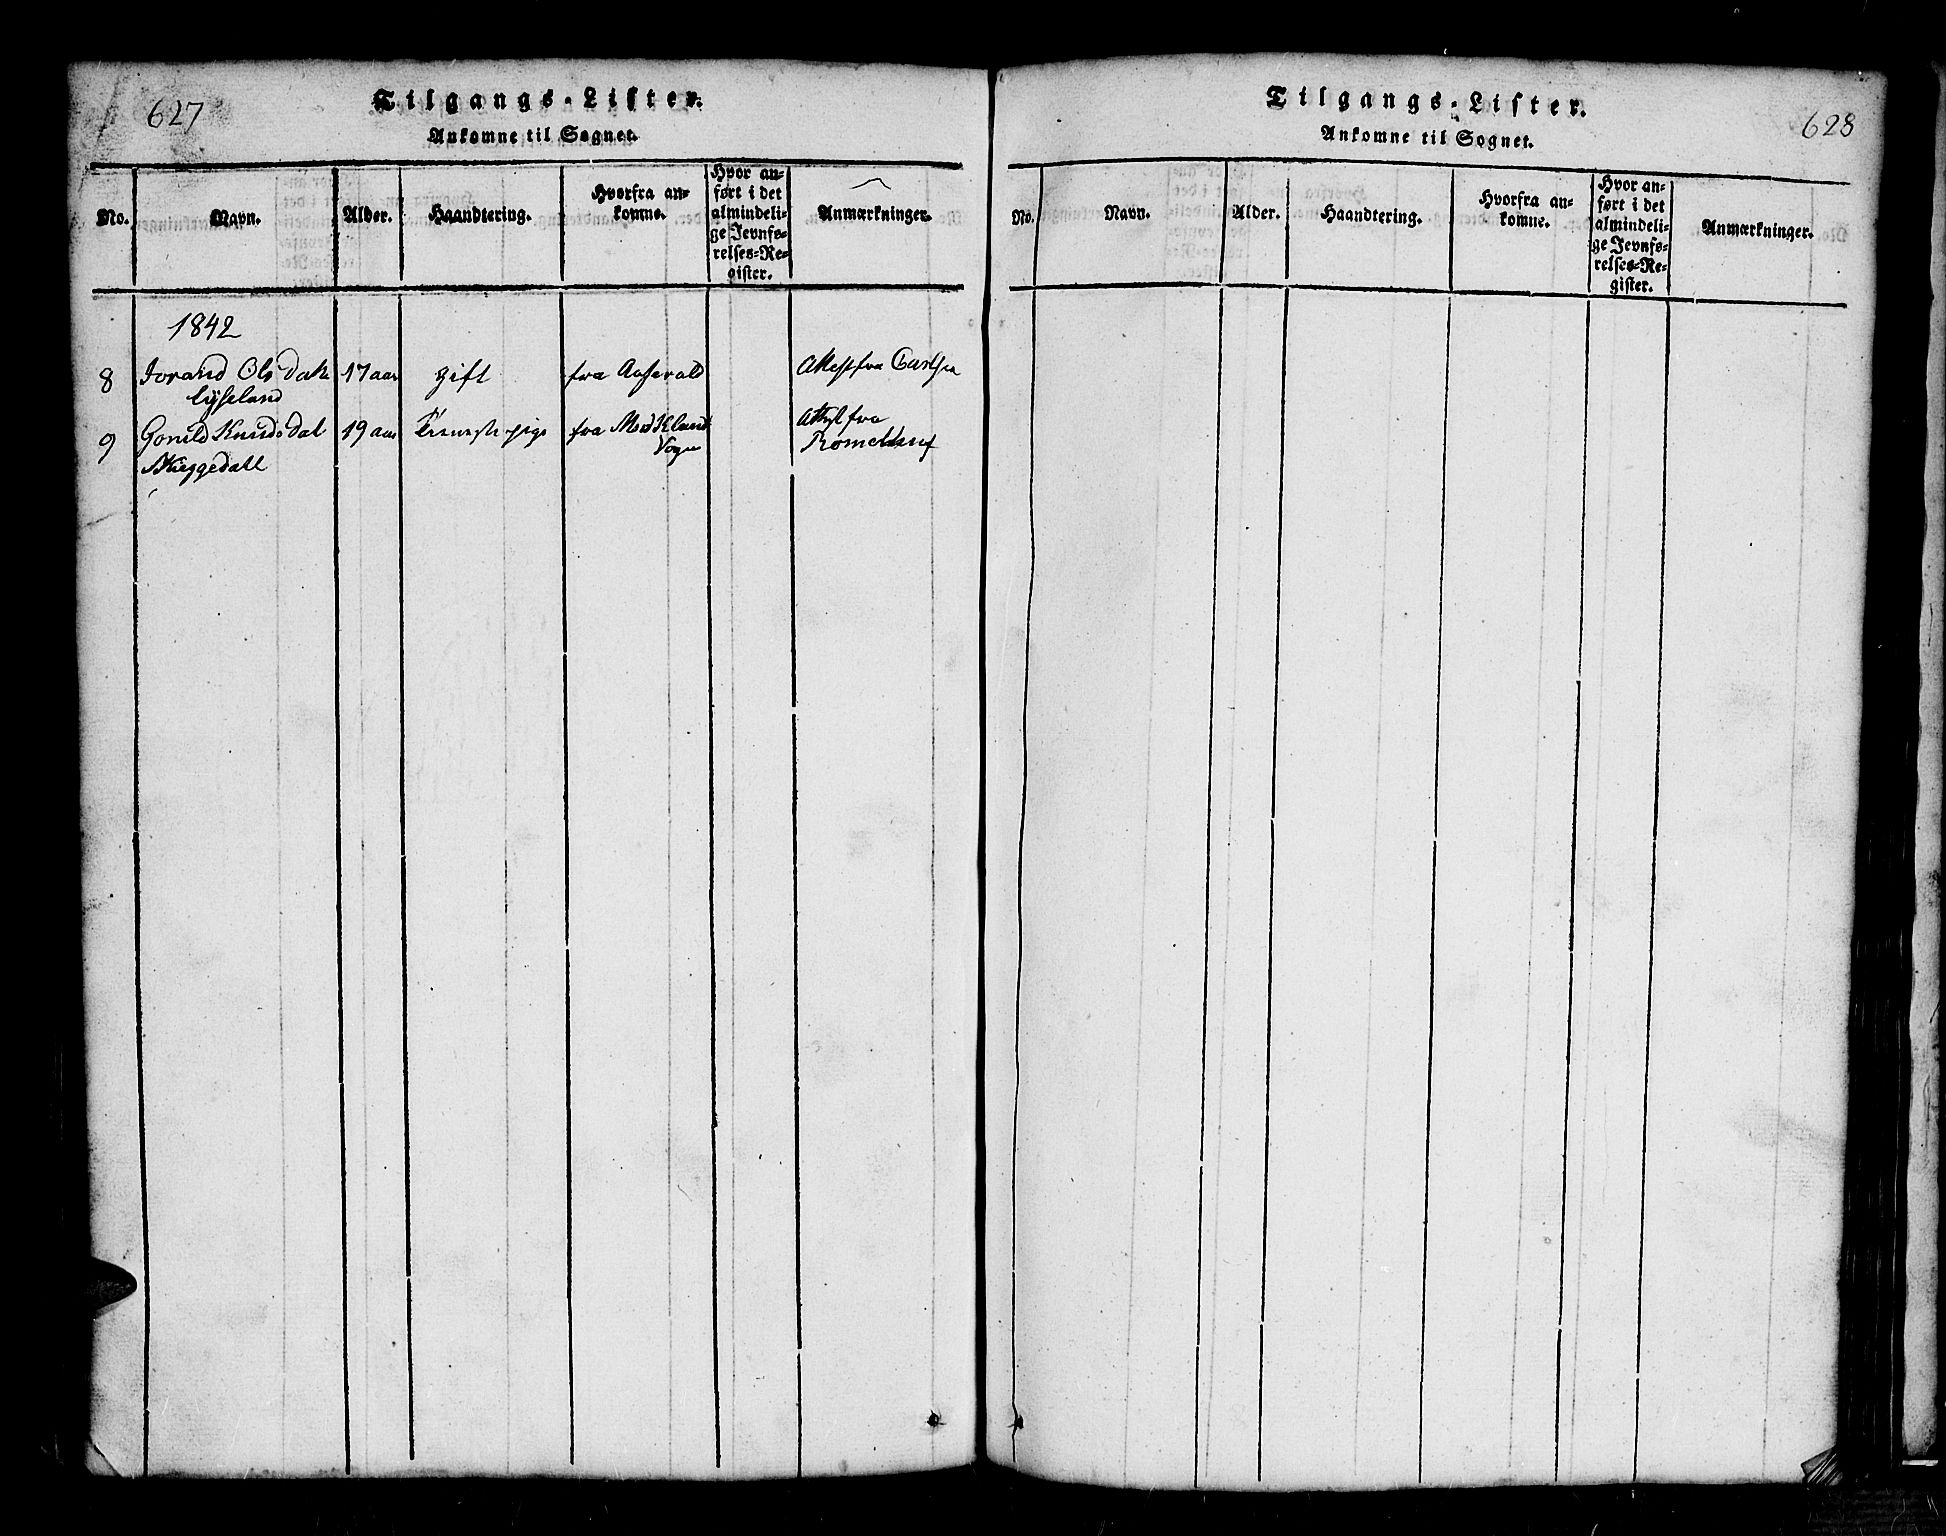 627
Tilgangs-Lister.
Ankomne til Sognet.
No.
Navn.
Alder.
Haandtering.
Hvorfra an-
komne.
Hvor an-
ført i det
almindeli-
ge Jevnfø-
relses-Re-
gister.
Anmærkninger.
1842
8 Jorand Ols Dat 17 aar gift fra Aaserald Attest fra
Lysland
9 Gonild Knuds Dat 19 aar fra Attest fra
Skeggedall
628
Tilgangs-Lister.
Ankomne til Sognet.
No.
Navn.
Alder.
Haandtering.
Hvorfra an-
komne.
Hvor an-
ført i det
almindeli-
ge Jevnfø-
relses-Re-
gister.
Anmærkninger.